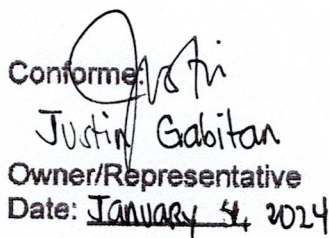 Conforme: Justin
Justin Gabitan
Owner/Representative
Date: January 4, 2024